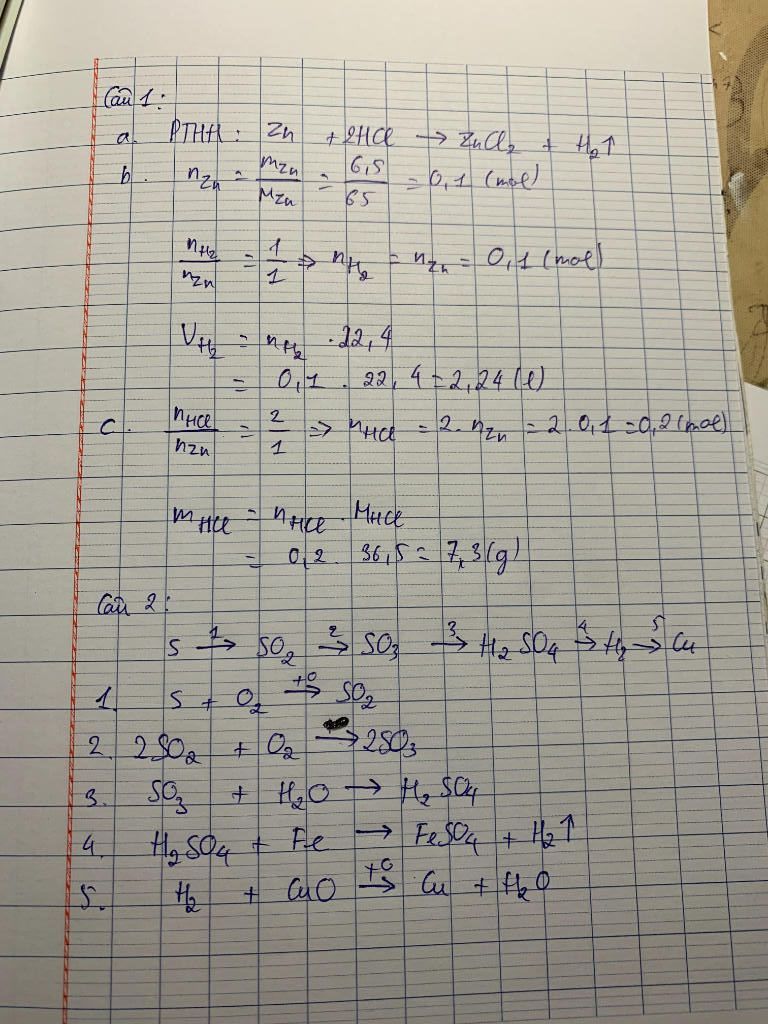 Câu 1:
a. PTHH: Zn + 2HCl → ZnCl₂ + H₂↑
b. n_Zn = m_Zn/M_Zn = 6,5/65 = 0,1 (mol)
n_H₂/n_Zn = 1/1 => n_H₂ = n_Zn = 0,1 (mol)
V_H₂ = n_H₂ . 22,4
= 0,1 . 22,4 = 2,24 (l)
c. n_HCl/n_Zn = 2/1 => n_HCl = 2. n_Zn = 2.0,1 = 0,2 (mol)
m_HCl = n_HCl . M_HCl
= 0,2 . 36,5 = 7,3 (g)
Câu 2:
S →¹ SO₂ →² SO₃ →³ H₂SO₄ →⁴ H₂ →⁵ Cu
1. S + O₂ →(t⁰) SO₂
2. 2SO₂ + O₂ → 2SO₃
3. SO₃ + H₂O → H₂SO₄
4. H₂SO₄ + Fe → FeSO₄ + H₂↑
5. H₂ + CuO →(t⁰) Cu + H₂O